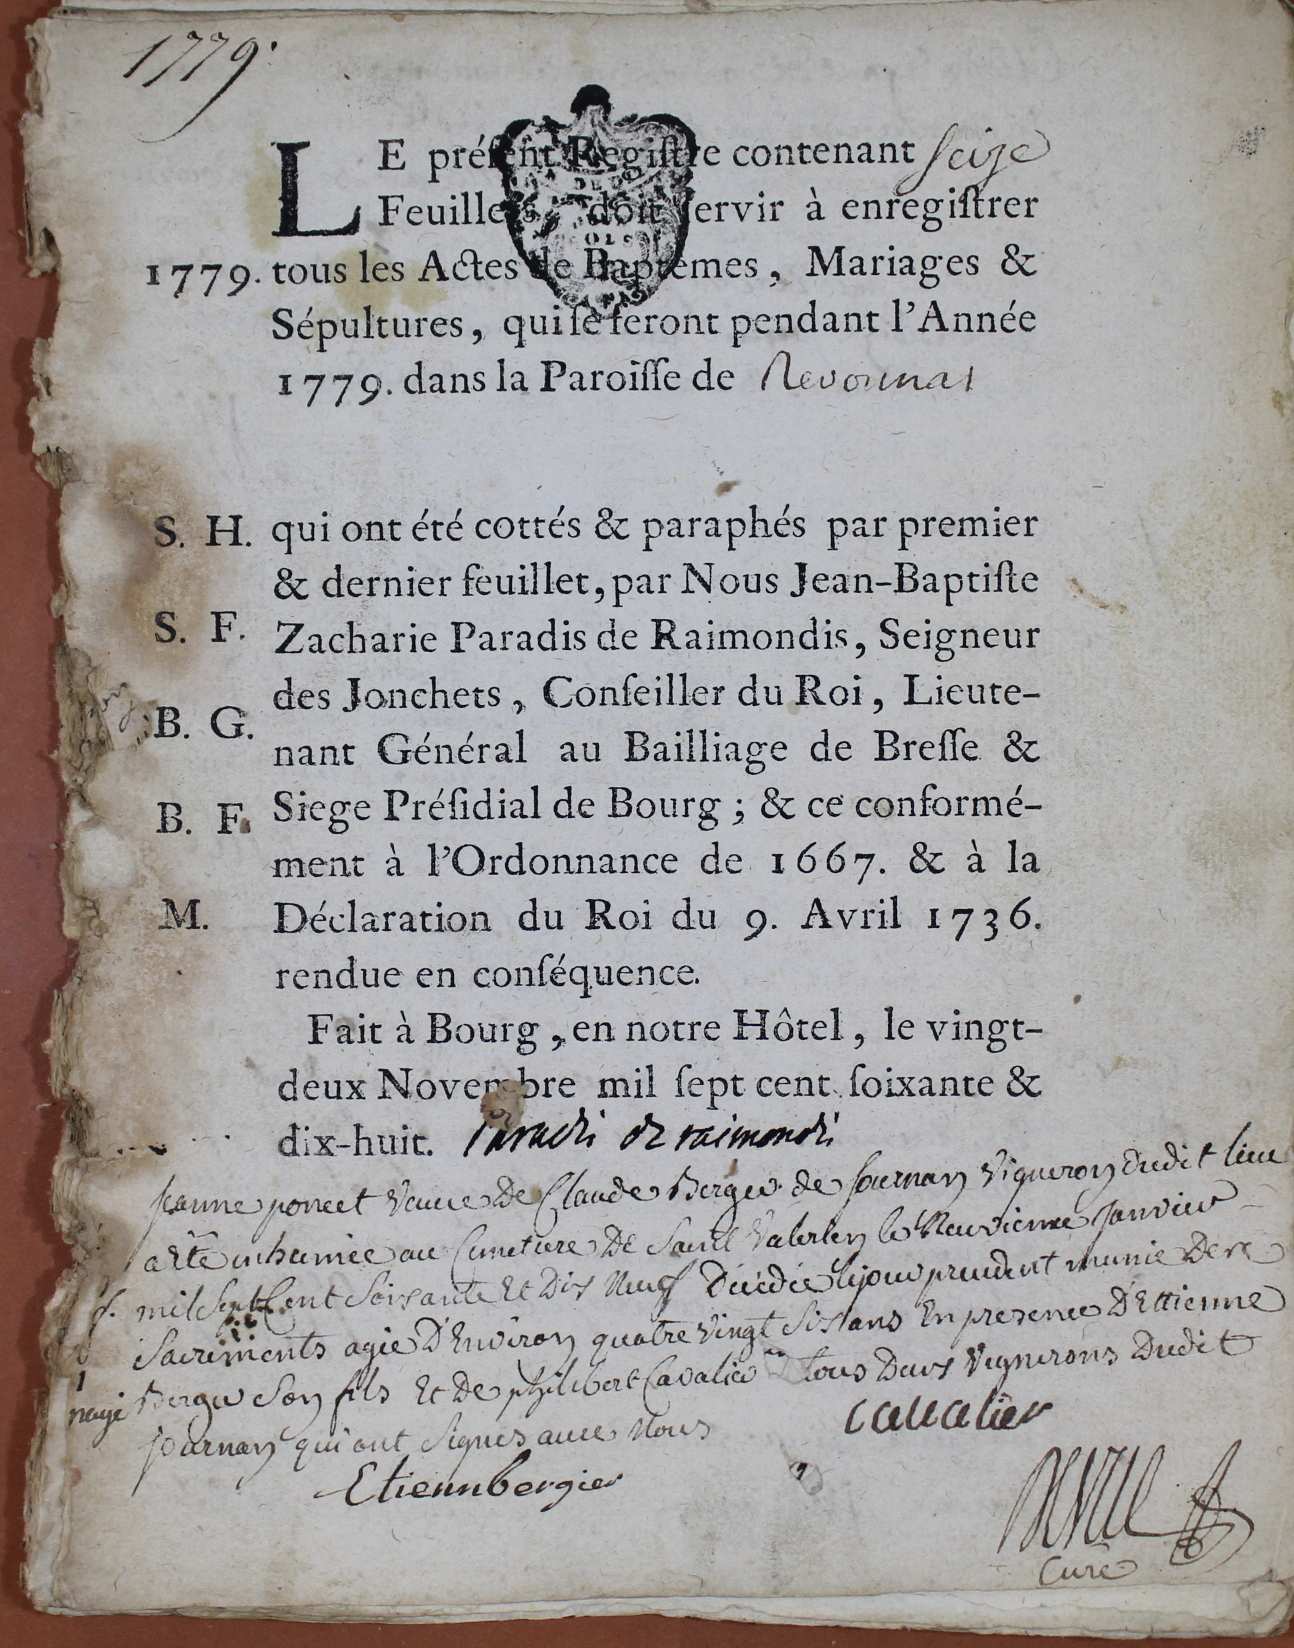 1779.
LE préſent Regiſtre contenant ſeize
Feuillets, doit ſervir à enregiſtrer
1779. tous les Actes de Baptêmes, Mariages &
Sépultures, qui ſe feront pendant l'Année
1779. dans la Paroiſſe de Revonnas
S. H. qui ont été cottés & paraphés par premier
& dernier feuillet, par Nous Jean-Baptiſte
S. F. Zacharie Paradis de Raimondis, Seigneur
des Jonchets, Conſeiller du Roi, Lieute-
B. G. nant Général au Bailliage de Breſſe &
B. F. Siege Préſidial de Bourg ; & ce conformé-
ment à l'Ordonnance de 1667. & à la
M. Déclaration du Roi du 9. Avril 1736.
rendue en conſéquence.
Fait à Bourg, en notre Hôtel, le vingt-
deux Novembre mil ſept cent ſoixante &
dix-huit. Paradi de raimondi
Jeanne poncet veuve De Claude Berger de journan vigneron dudit lieu
a Eté inhumée au Cimetiere De Saint Valerien le Neuvieme janvier
mil Sept Cent Soixante Et Dix Neuf Décédée le jour precedent munie De
Sacrements agée D'Environ quatre vingt Six ans En presence D'Ettienne
Berger Son fils Et De philibert Cavalier tous Deux vignerons Dudit
journan qui ont Signés avec Nous cavalier
Etiennbergier
Curé